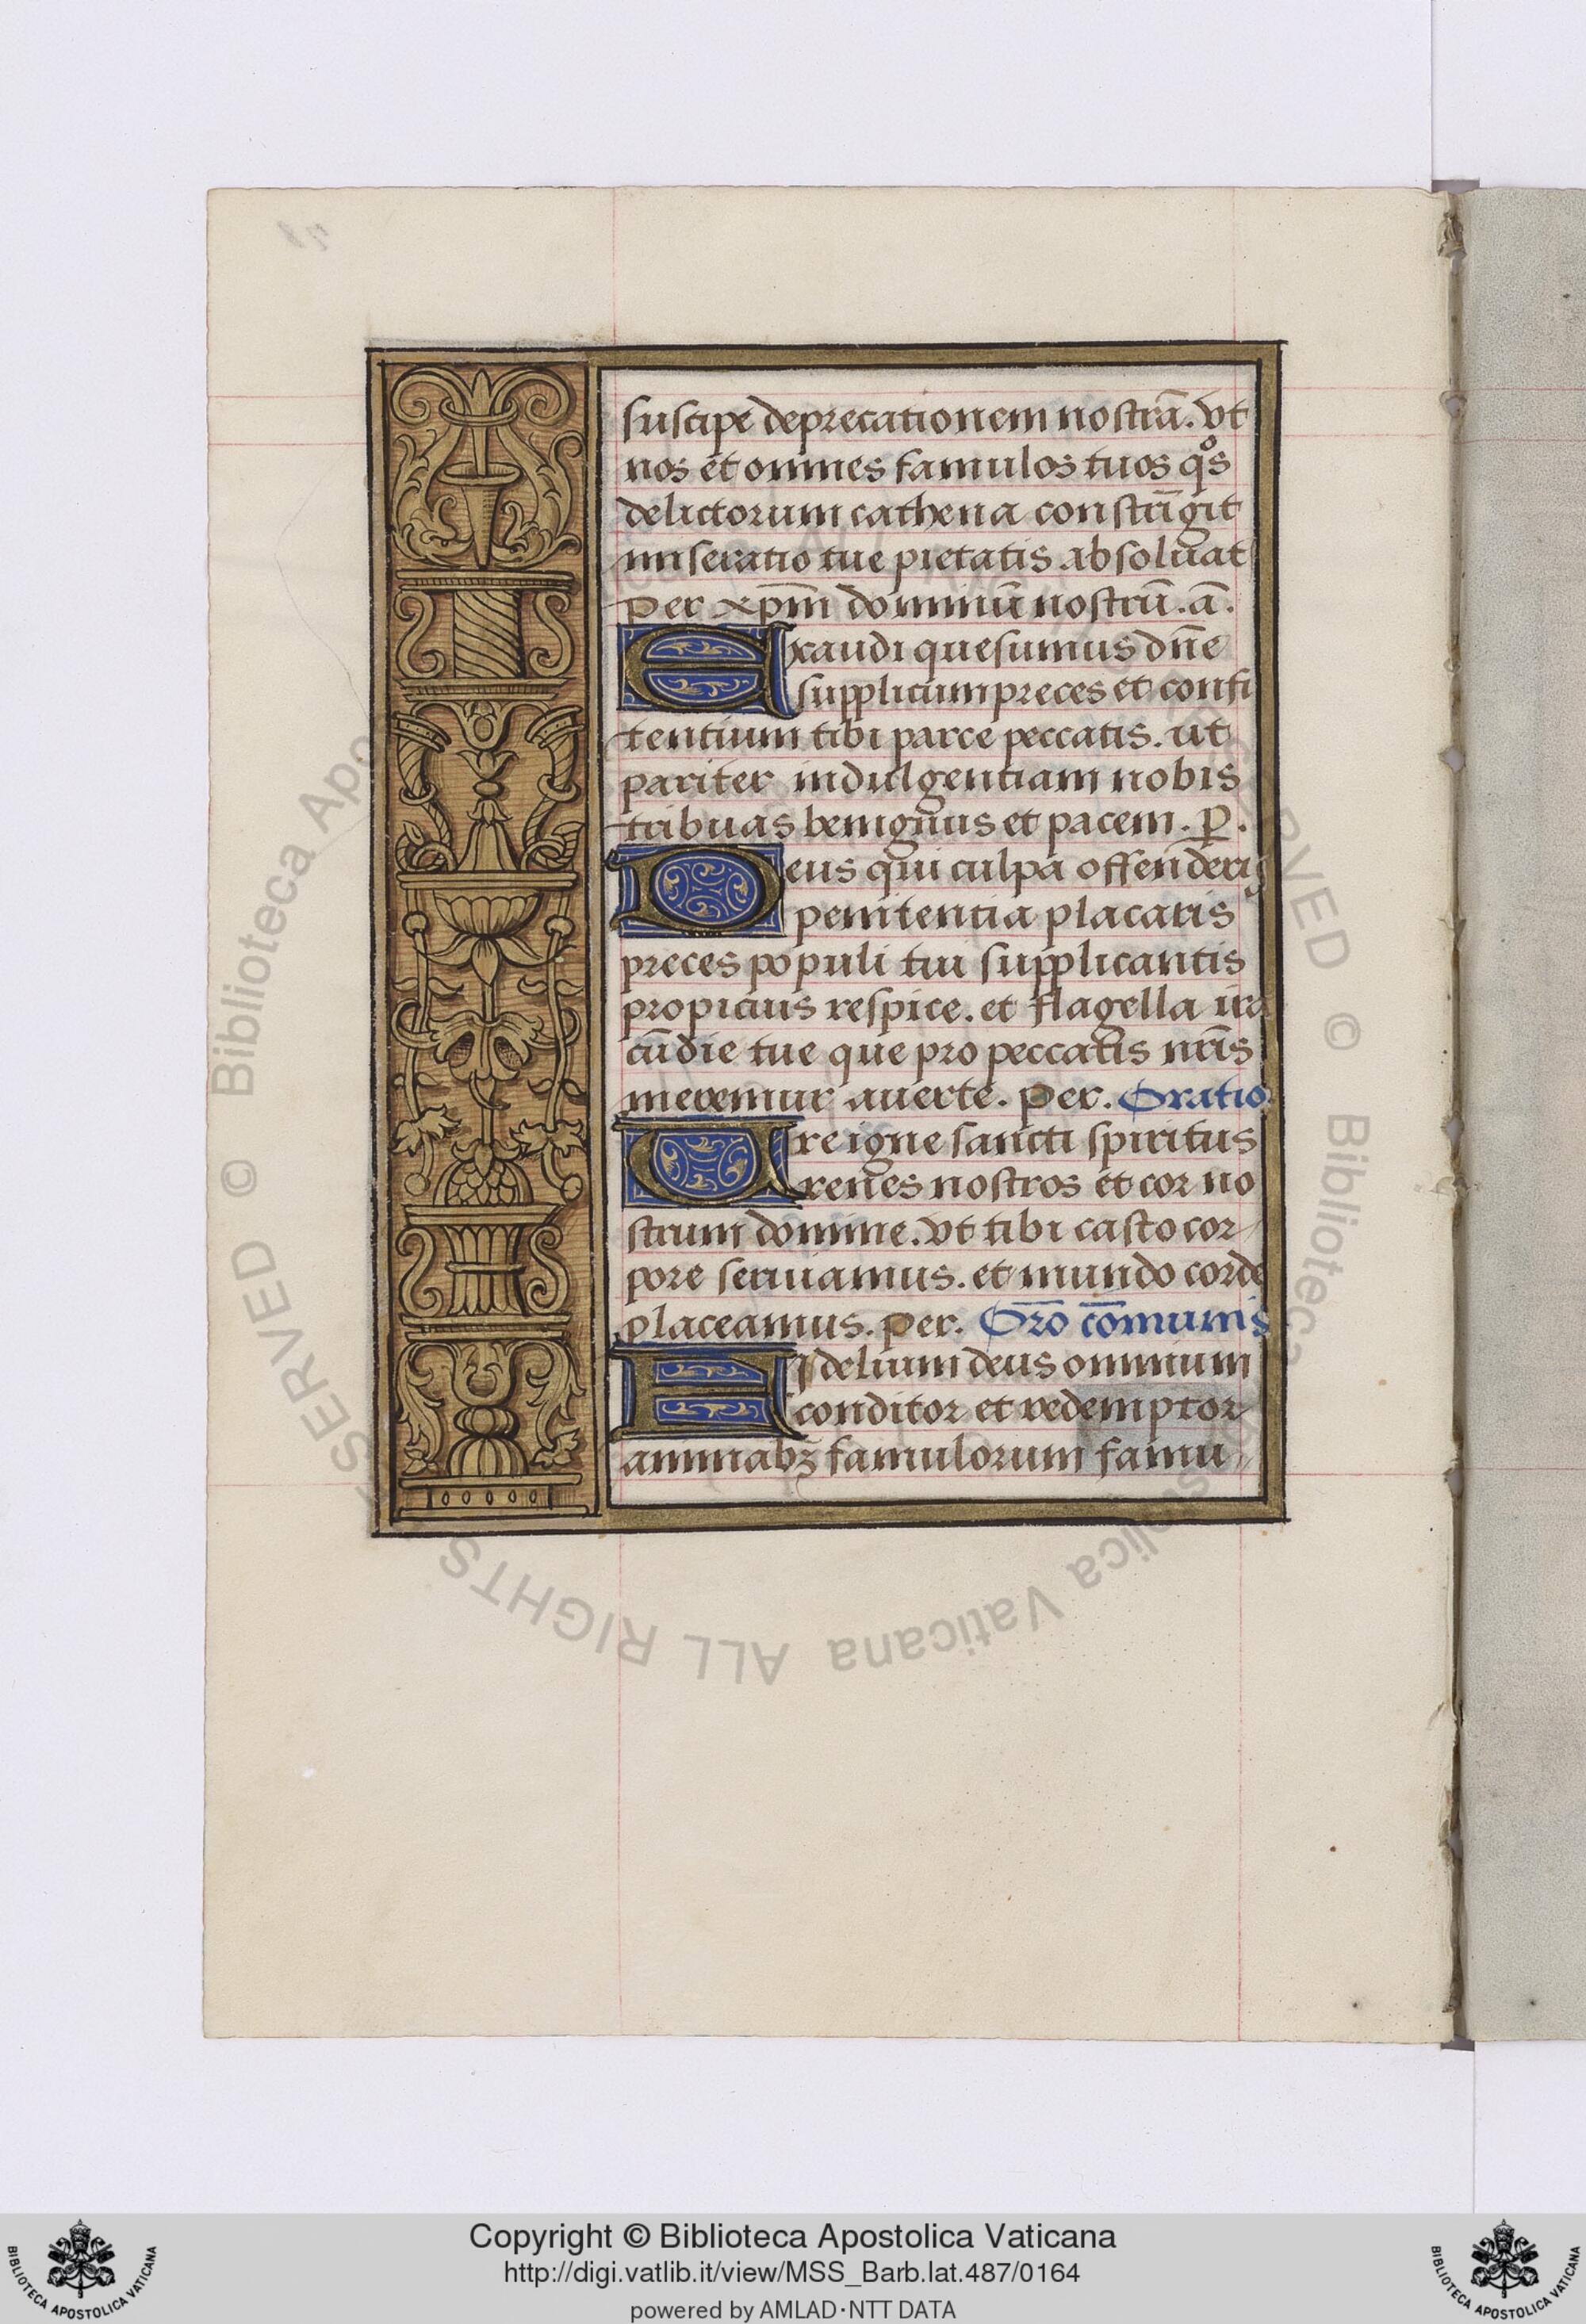 suscipe deprecationem nostrā. vt
nos et omnes famulos tuos qͦs
delictorum cathena constrīgit
miseratio tue pietatis absoluat
Per xp̄m dominū nostrū. ā.
Exaudi quesumus dn̄e
supplicum preces et confi
tentium tibi parce peccatis. ut
pariter indulgentiam nobis
tribuas benignus et pacem. ꝑ.
Deus qui culpa offenderis
penitentia placaris
preces populi tui supplicantis
propicius respice. et flagella ira
cūdie tue que pro peccatis nr̄is
meremur auerte. Per. Oratio.
Vre igne sancti spiritus
renes nostros et cor no
strum domine. vt tibi casto cor-
pore seruiamus. et mundo corde
placeamus. per. Or̄o cōmunis
Fidelium deus omnium
conditor et redemptor
animabꝫ famulorum famu-
© Biblioteca Apostolica Vaticana ALL RIGHTS RESERVED © Biblioteca Apostolica Vaticana ALL RIGHTS RESERVED
Copyright © Biblioteca Apostolica Vaticana
http://digi.vatlib.it/view/MSS_Barb.lat.487/0164
powered by AMLAD·NTT DATA
BIBLIOTECA APOSTOLICA VATICANA
BIBLIOTECA APOSTOLICA VATICANA